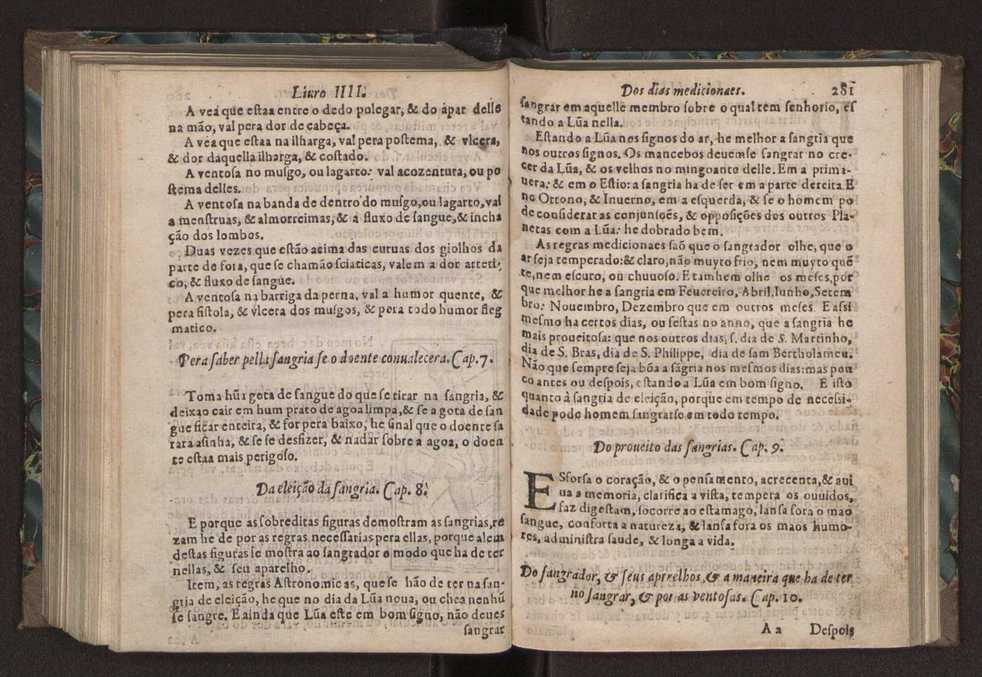 Liuro IIII.
A vea que estaa entre o dedo polegar, & do àpar delle
na mão, val pera dor de cabeça.
A vea que estaa na ilharga, val pera postema, & vlcera,
& dor daquella ilharga, & costado.
A ventosa no musgo, ou lagarto: val acozentura, ou po
stema delles.
A ventosa na banda de dentro do musgo, ou lagarto, val
a menstruas, & almorreimas, & a fluxo de sangue, & incha
ção dos lombos.
Duas vezes que estão acima das curuas dos giolhos da
parte de fora, que se chamão sciaticas, valem a dor arteti-
co, & fluxo de sangue.
A ventosa na barriga da perna, val a humor quente, &
pera fistola, & vlcera dos musgos, & pera todo humor fleg
matico.
Pera saber pella sangria se o doente conualecera. Cap. 7.
Toma hũa gota de sangue do que se tirar na sangria, &
deixao cair em hum prato de agoa limpa, & se a gota de san
gue ficar enteira, & for pera baixo, he sinal que o doente sa
rara asinha, & se se desfizer, & nadar sobre a agoa, o doen
te estaa mais perigoso.
Da eleição da sangria. Cap. 8.
E porque as sobreditas figuras demostram as sangrias, re
zam he de por as regras necessarias pera ellas, porque alem
destas figuras se mostra ao sangrador o modo que ha de ter
nellas, & seu aparelho.
Item, as regras Astronomicas, que se hão de ter na san-
gria de eleição, he que no dia da Lũa noua, ou chea nenhũ
se sangre. E ainda que Lũa este em bom signo, não deues
sangrar
Dos dias medicionaes. 281
sangrar em aquelle membro sobre o qual tem senhorio, es
tando a Lũa nella.
Estando a Lũa nos signos do ar, he melhor a sangria que
nos outros signos. Os mancebos deuemse sangrar no cre-
cer da Lũa, & os velhos no mingoante delle. Em a prima-
uera: & em o Estio: a sangria ha de ser em a parte dereita. E
no Ottono, & Inuerno, em a esquerda, & se o homem po
de considerar as conjunsões, & opposições dos outros Pla-
netas com a Lũa: he dobrado bem.
As regras medicionaes saõ que o sangrador olhe, que o
ar seja temperado: & claro, não muyto frio, nem muyto quē
te, nem escuro, ou chuuoso. E tambem olhe os meses, por
que melhor he a sangria em Feuereiro, Abril, Iunho, Setem
bro: Nouembro, Dezembro que em outros meses. E assi
mesmo ha certos dias, ou festas no anno, que a sangria he
mais proueitosa: que nos outros dias, s. dia de S. Martinho,
dia de S. Bras, dia de S. Philippe, dia de sam Bertholameu.
Não que sempre seja bõa a sãgria nos mesmos dias: mas pou
co antes ou despois, estando a Lũa em bom signo. E isto
quanto à sangria de eleição, porque em tempo de necessi-
dade pode homem sangrarse em todo tempo.
Do proueito das sangrias. Cap. 9.
ESforsa o coração, & o pensamento, acrecenta, & aui
ua a memoria, clarifica a vista, tempera os ouuidos,
faz digestam, socorre ao estamago, lansa fora o mao
sangue, conforta a natureza, & lansa fora os maos humo-
res, administra saude, & longa a vida.
Do sangrador, & seus aprrelhos, & a maneira que ha de ter
no sangrar, & por as ventosas. Cap. 10.
Aa Despois